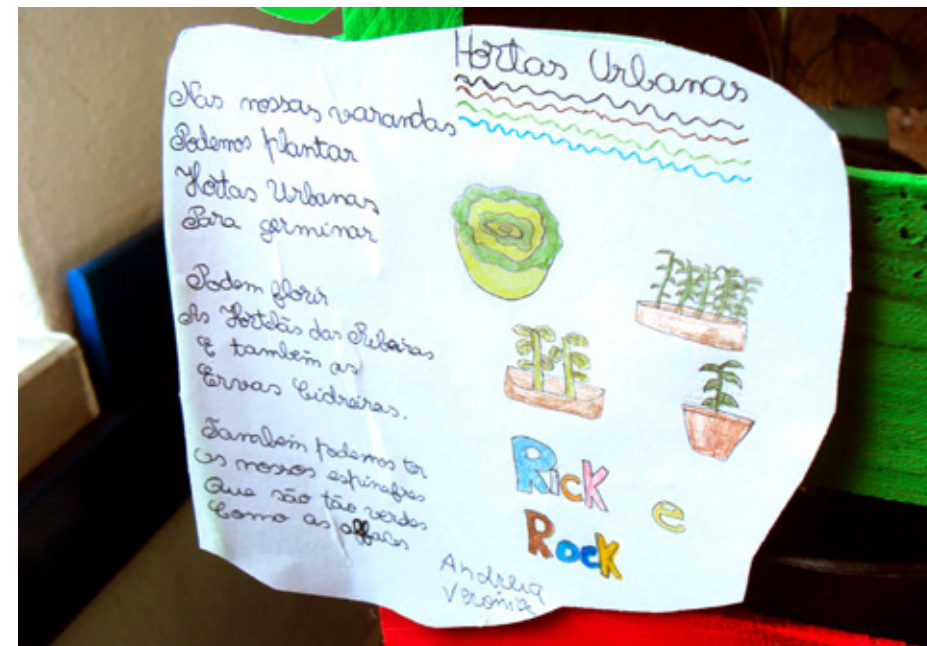 Hortas Urbanas
Nas nossas varandas
Podemos plantar
Hortas Urbanas
Para germinar
Podem florir
As Hortelãs das Ribeiras
E também as
Ervas Cidreiras.
Também podemos ter
Os nossos espinafres
Que são tão verdes
Como as alfaces
Rick e
Rock
Andreia
Verónica